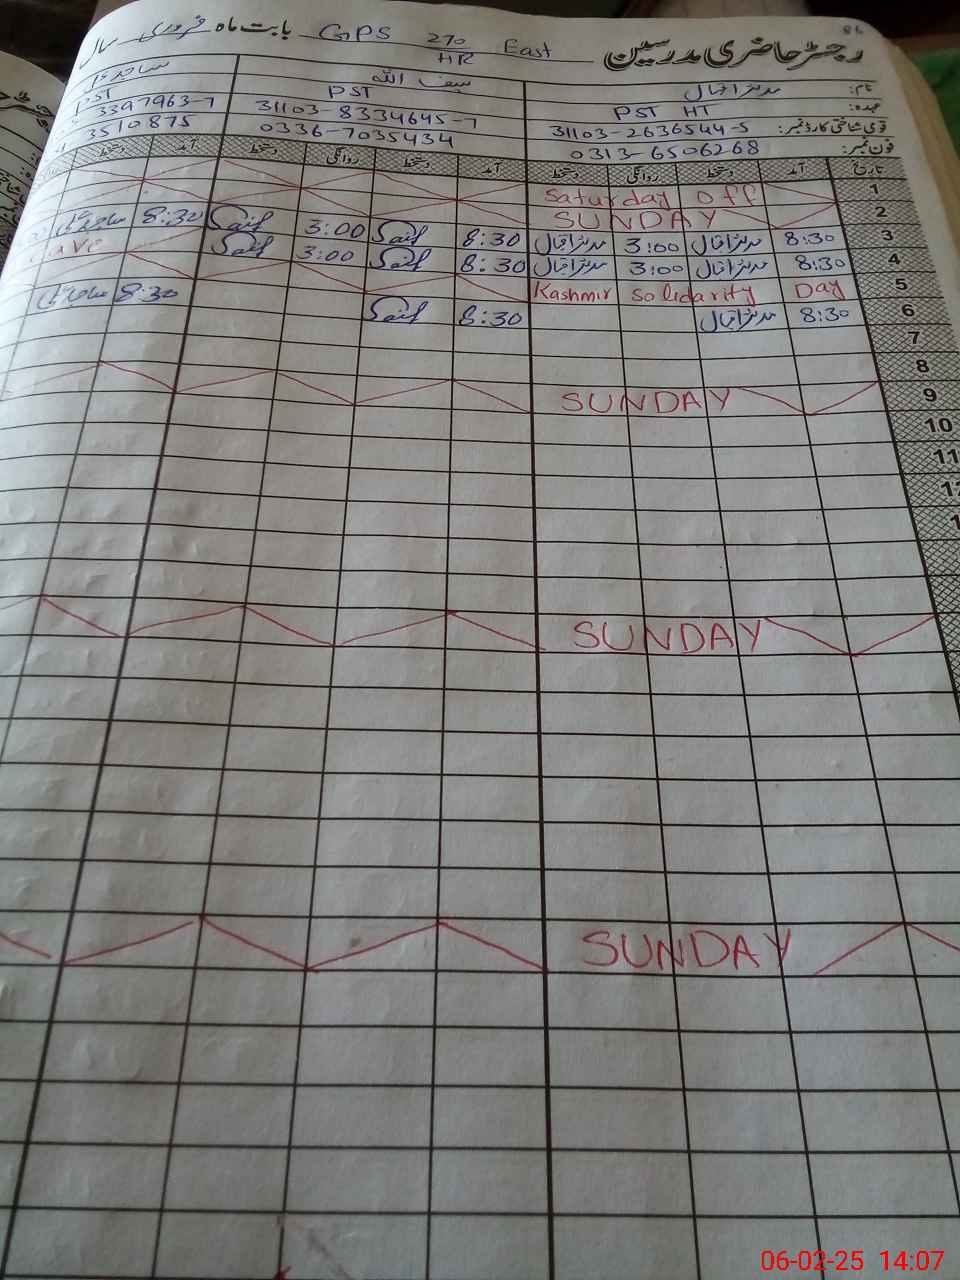 رجسٹر حاضری مدرسین GPS 270/HR East بابت ماہ فروری سال
98
نام: مدثر اقبال سیف اللہ ساجد
عہدہ: PST HT PST PST
قومی شناختی کارڈ نمبر: 31103-2636544-5 31103-8334645-7 3397963-7
فون نمبر: 0313-6506268 0336-7035434 3510875
تاریخ آمد دستخط روانگی دستخط آمد دستخط روانگی دستخط آمد دستخط
1 Saturday off
2 SUNDAY
3 8:30 مدثر اقبال 3:00 مدثر اقبال 8:30 Saif 3:00 Saif 8:30
4 8:30 مدثر اقبال 3:00 مدثر اقبال 8:30 Saif 3:00 Saif
5 Kashmir Solidarity Day
6 8:30 مدثر اقبال 8:30 Saif 8:30
7
8
9 SUNDAY
10
11
SUNDAY
SUNDAY
06-02-25 14:07